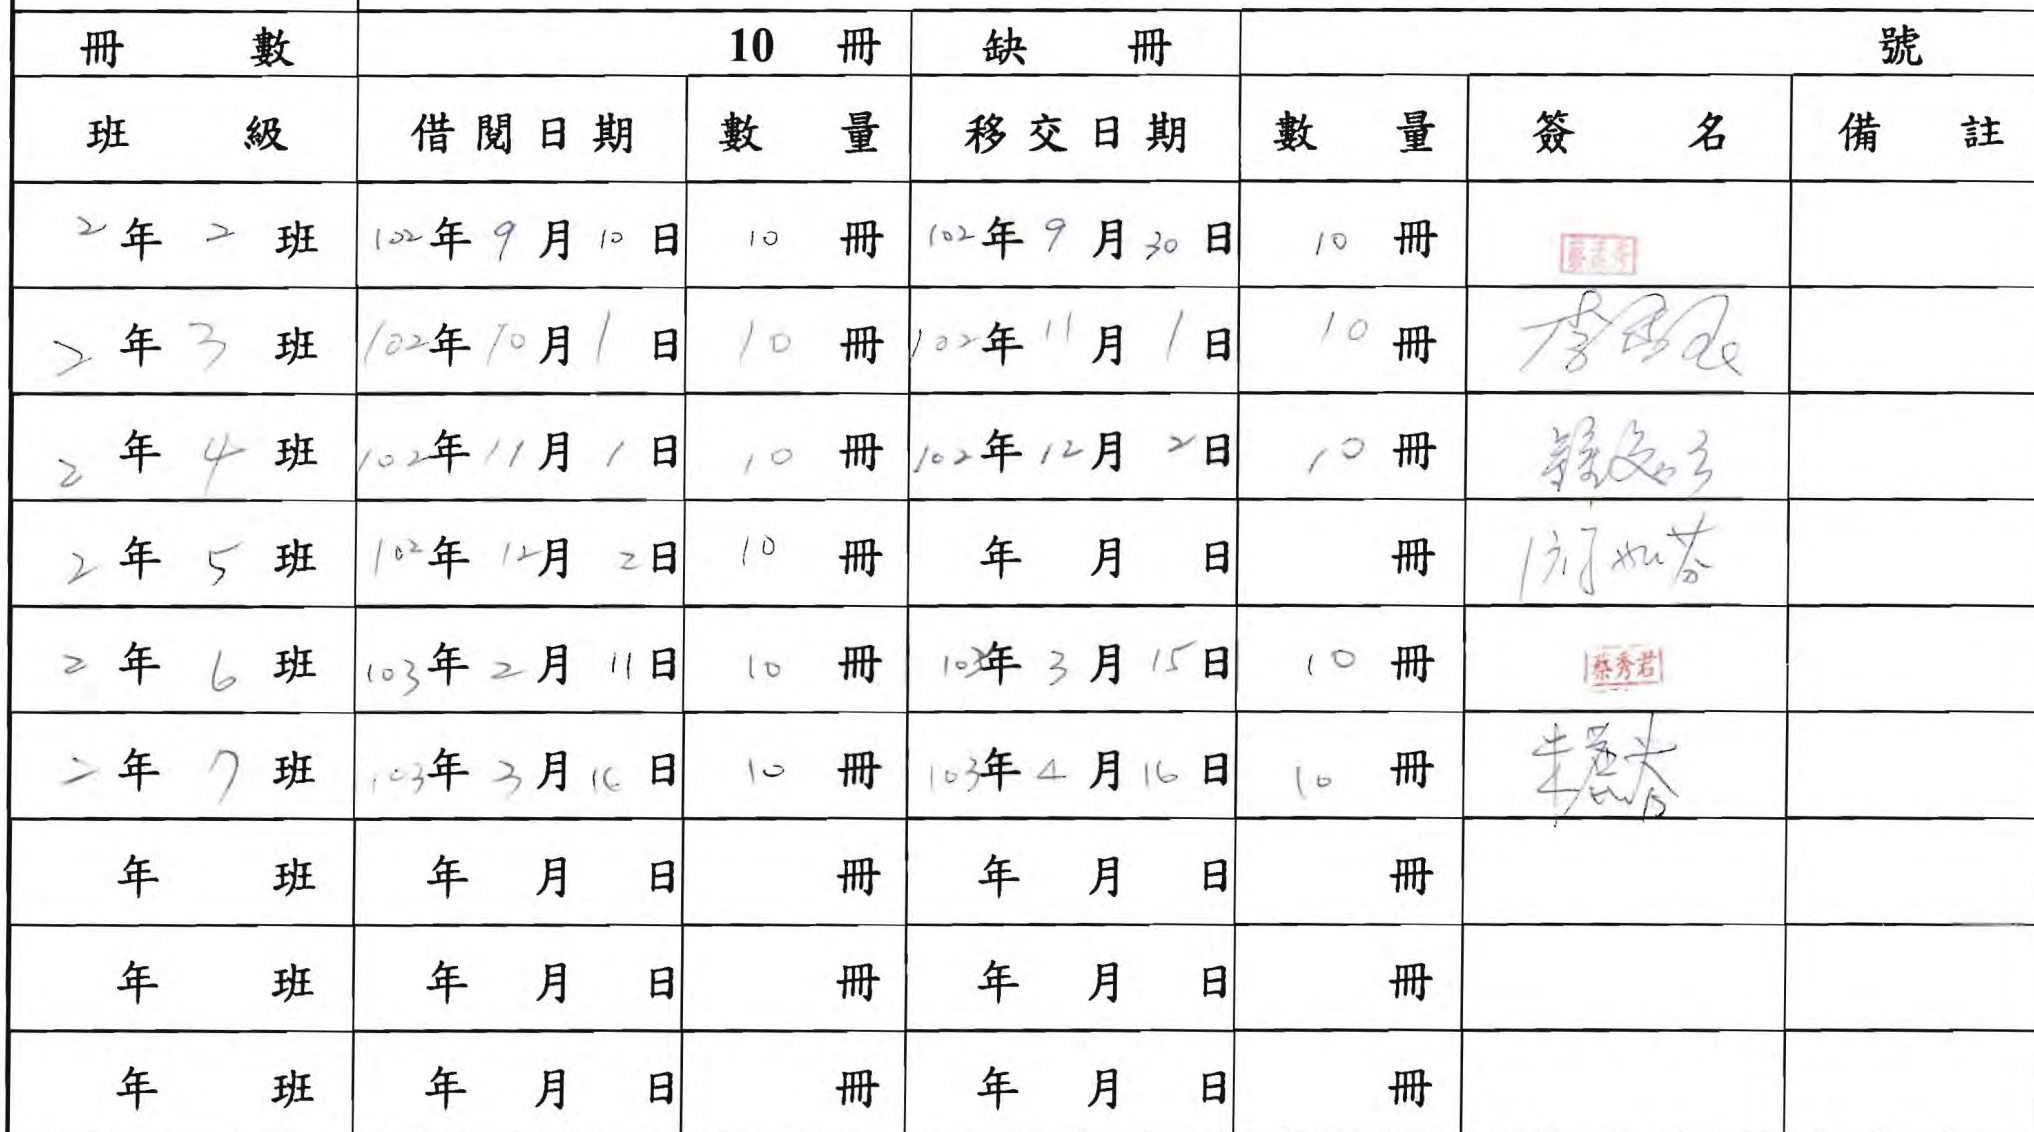 冊數 10 冊 缺冊 號
班級 借閱日期 數量 移交日期 數量 簽名 備註
2年2班 102年9月10日 10冊 102年9月30日 10冊
2年3班 102年10月1日 10冊 102年11月1日 10冊
2年4班 102年11月1日 10冊 102年12月2日 10冊
2年5班 102年12月2日 10冊 年月日 冊
2年6班 103年2月11日 10冊 103年3月15日 10冊 蔡秀君
2年7班 103年3月16日 10冊 103年4月16日 10冊
年班 年月日 冊 年月日 冊
年班 年月日 冊 年月日 冊
年班 年月日 冊 年月日 冊